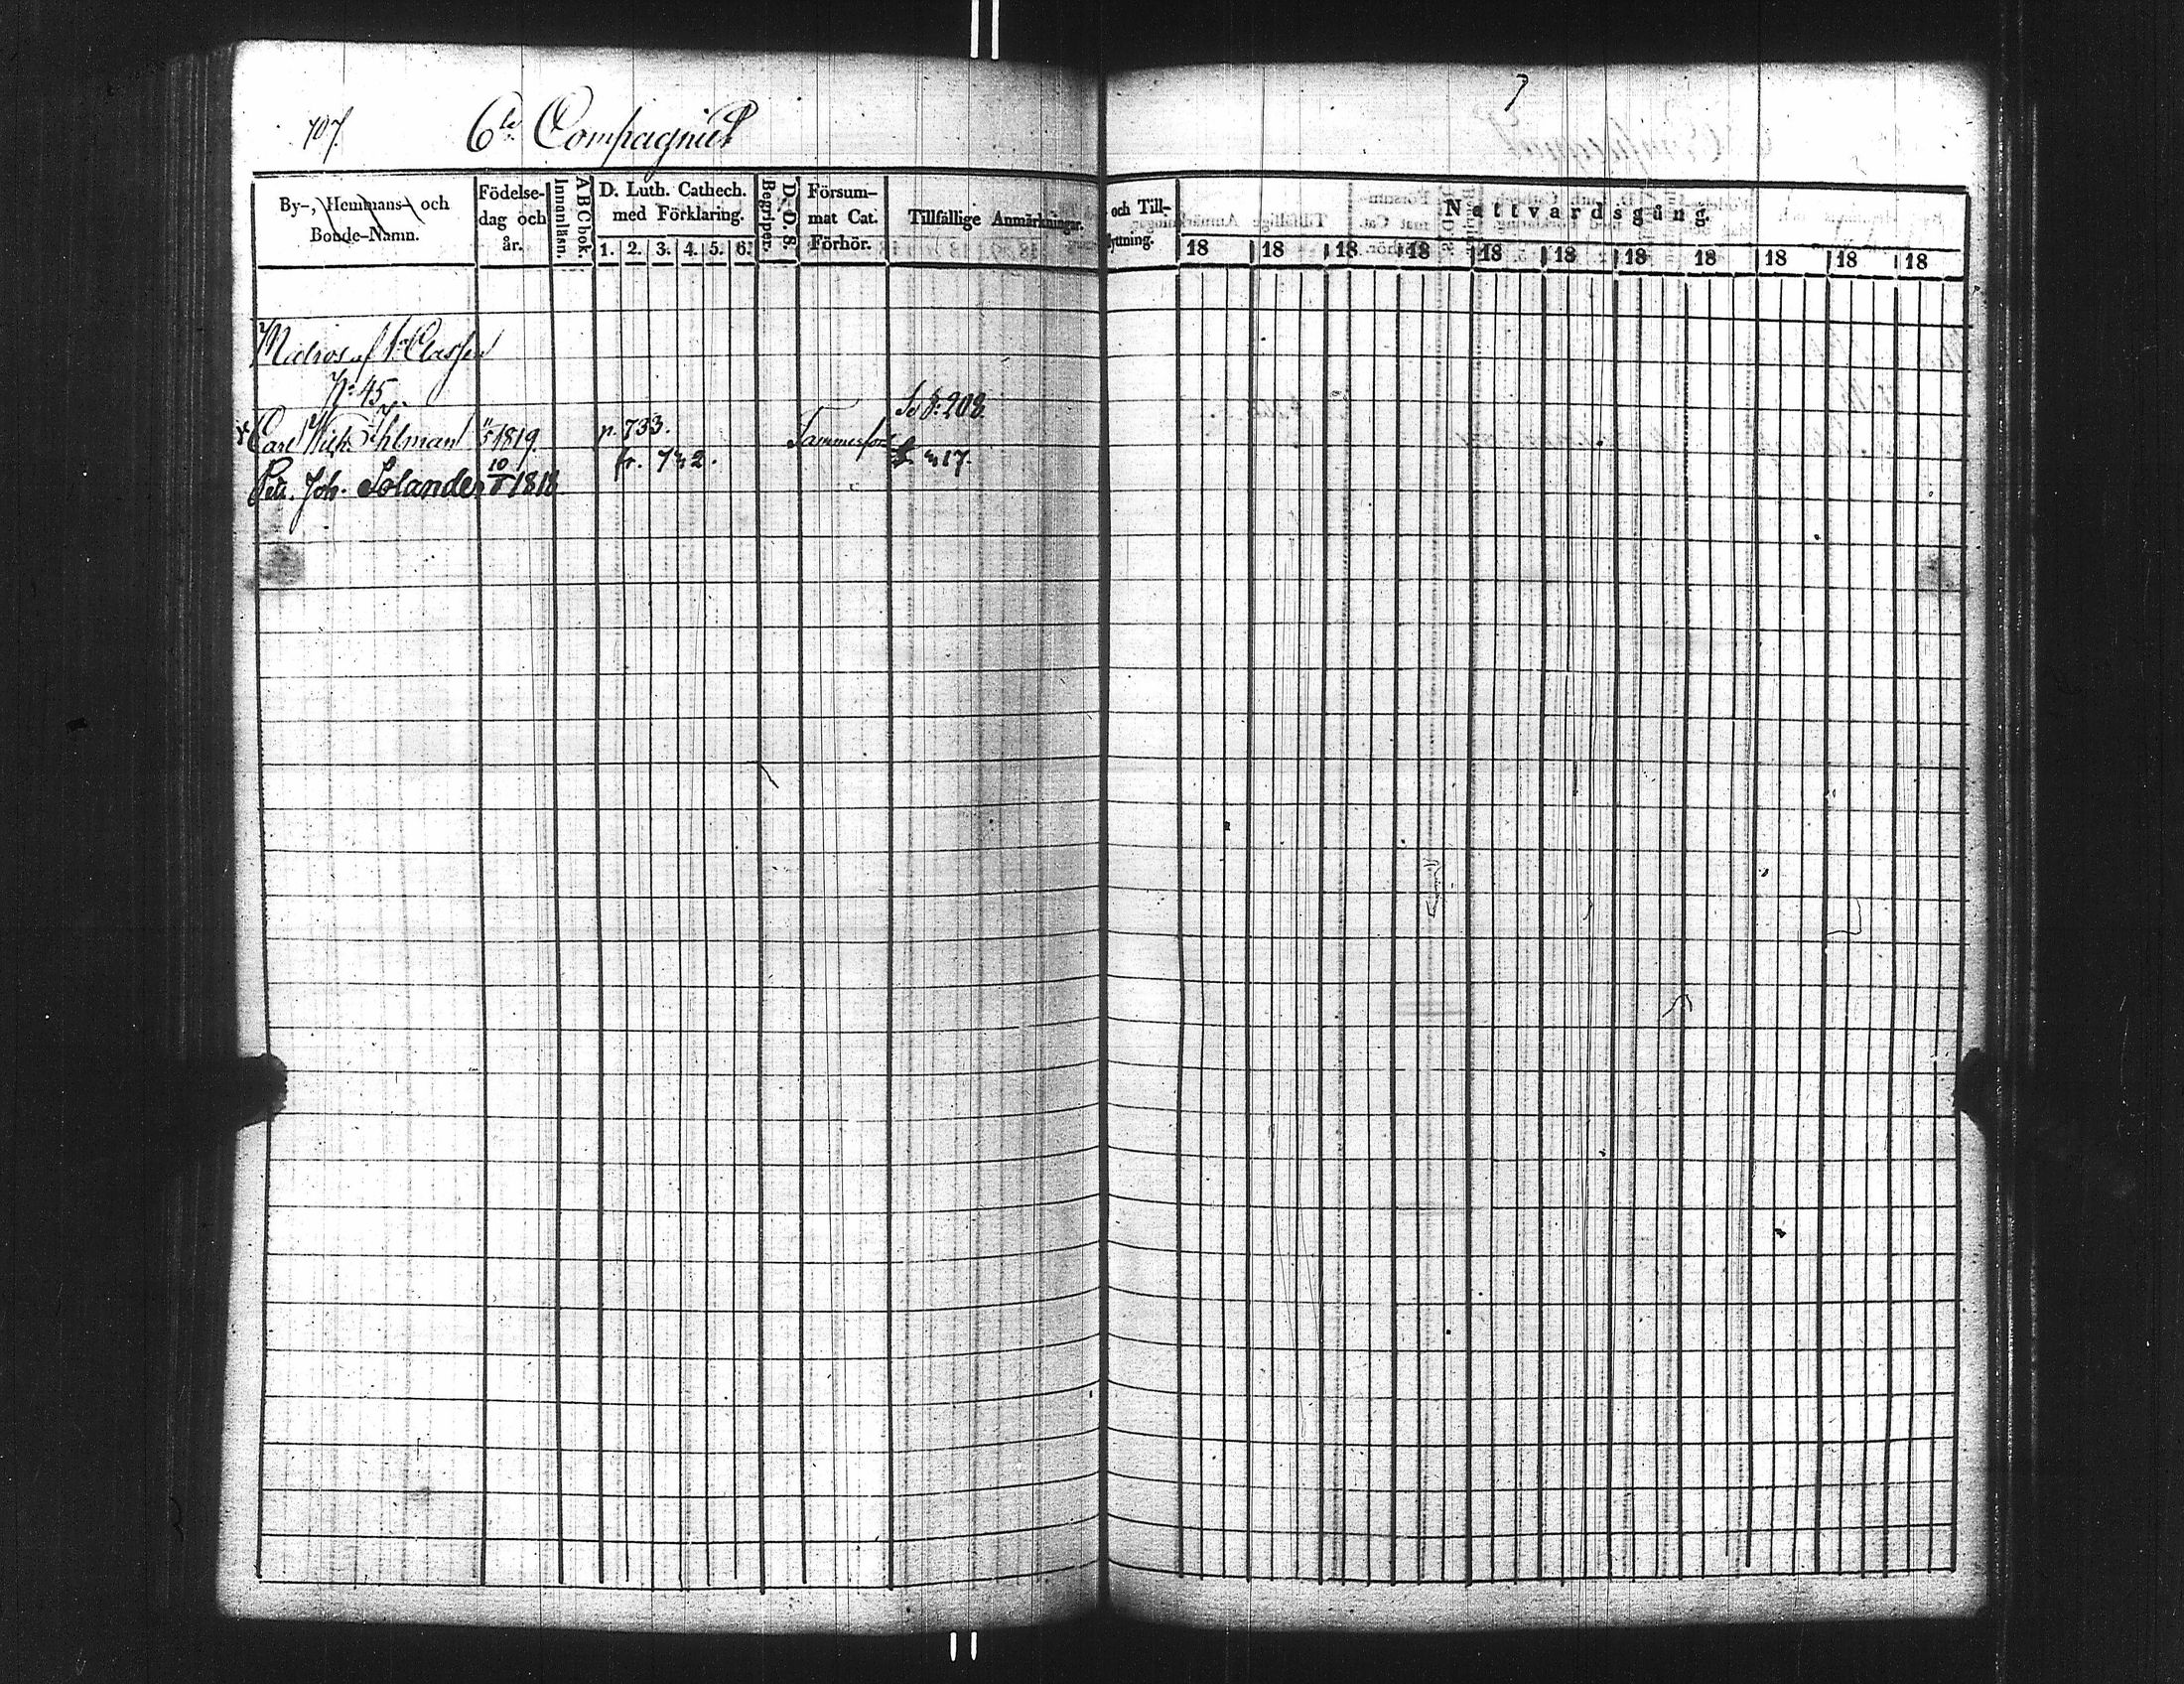 707. 6te Compagniet
By-, Hemmans- och Bonde-Namn.
Födelse-dag och år.
ABCbok. Innanläsn.
D. Luth. Cathech. med Förklaring.
1. 2. 3. 4. 5. 6.
D. O. S. Begriper.
Försum-mat Cat. Förhör.
Tillfällige Anmärkningar.
och Till-
yttning.
Nattvardsgång.
18 18 18 18 18 18 18 18 18 18 18
Matros af 1a Classen
No 45
Carl Wilh. Ihlman 1819. p. 733. Tammerfors
208
Pett. Joh. Solander 10/8 1818 fr. 742. 17.